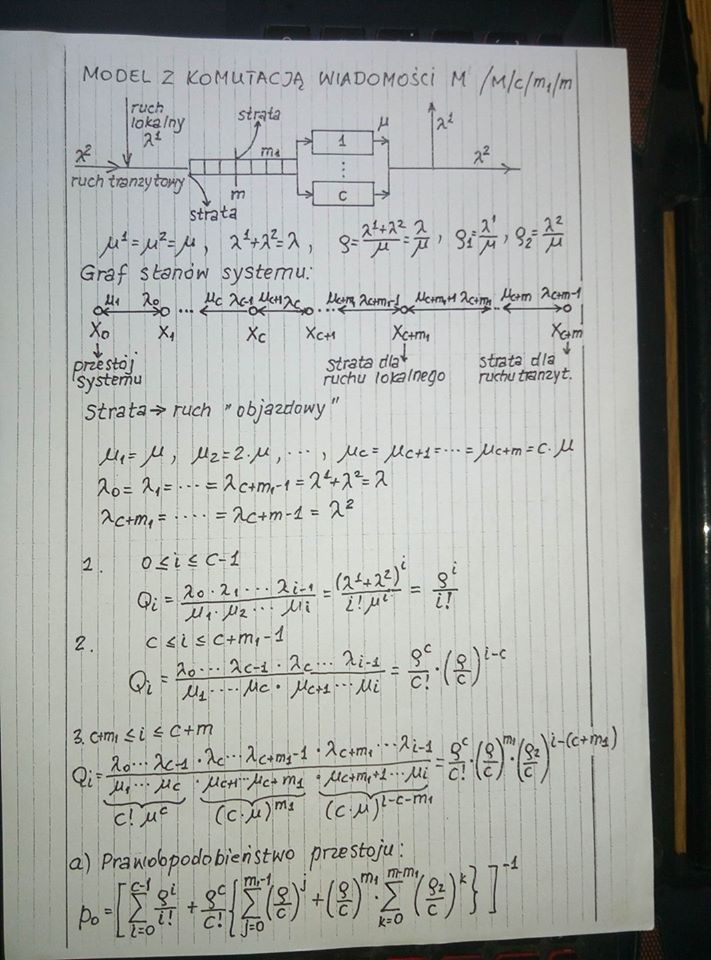 MODEL Z KOMUTACJĄ WIADOMOŚCI M/M/c/m₁/m
ruch lokalny λ¹
strata
λ²
m₁
1
μ
λ¹
λ²
ruch tranzytowy
⋮
m
c
strata
μ¹=μ²=μ, λ¹+λ²=λ, ϱ=(λ¹+λ²)/μ=λ/μ, ϱ₁=λ¹/μ, ϱ₂=λ²/μ
Graf stanów systemu:
μ₁ λ₀ ... μc λc-1 μc+1 λc ... μc+m₁ λc+m₁-1 μc+m₁+1 λc+m₁ ... μc+m λc+m-1
X₀ X₁ Xc Xc+1 Xc+m₁ Xc+m
przestój systemu
strata dla ruchu lokalnego
strata dla ruchu tranzyt.
Strata → ruch "objazdowy"
μ₁=μ, μ₂=2·μ, ..., μc=μc+1=...=μc+m=c·μ
λ₀=λ₁=...=λc+m₁-1=λ¹+λ²=λ
λc+m₁=.....=λc+m-1=λ²
1. 0≤i≤c-1
Qi=(λ₀·λ₁...λi-1)/(μ₁·μ₂...μi)=(λ¹+λ²)^i/(i!μ^i)=ϱ^i/i!
2. c≤i≤c+m₁-1
Qi=(λ₀...λc-1·λc...λi-1)/(μ₁....μc·μc+1...μi)=ϱ^c/c!·(ϱ/c)^(i-c)
3. c+m₁≤i≤c+m
Qi=(λ₀...λc-1·λc...λc+m₁-1·λc+m₁...λi-1)/(μ₁...μc·μc+1...μc+m₁·μc+m₁+1...μi)=ϱ^c/c!·(ϱ/c)^m₁·(ϱ₂/c)^(i-(c+m₁))
c!μ^c (c·μ)^m₁ (c·μ)^(i-c-m₁)
a) Prawdopodobieństwo przestoju:
p₀=[∑_{i=0}^{c-1} ϱ^i/i! + ϱ^c/c!{∑_{j=0}^{m₁-1}(ϱ/c)^j+(ϱ/c)^m₁·∑_{k=0}^{m-m₁}(ϱ₂/c)^k}]^-1